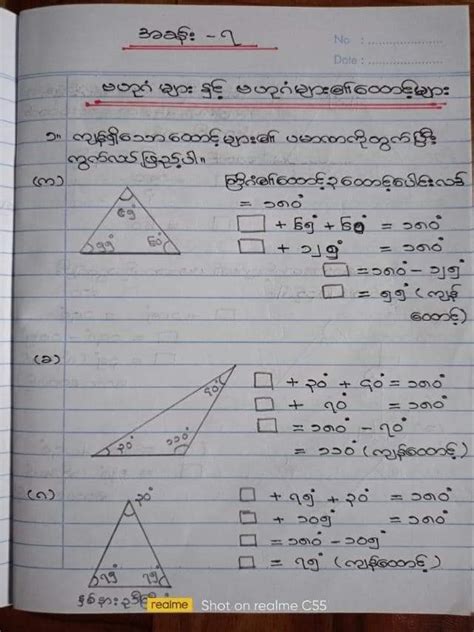 အခန်း - ၇
No : ....................
Date : ....................
ဗဟုဂံ များ နှင့် ဗဟုဂံများ၏ထောင့်များ
၁။ ကျန်ရှိသောထောင့်များ၏ ပမာဏကိုတွက်ပြီး
ကွက်လပ်ဖြည့်ပါ။
(က)
၆၅°
၅၅°
၆၀°
တြိဂံ၏ထောင့်၃ထောင့်ပေါင်းလဒ်
= ၁၈၀°
□ + ၆၅° + ၆၀° = ၁၈၀°
□ + ၁၂၅° = ၁၈၀°
□ = ၁၈၀° - ၁၂၅°
□ = ၅၅° (ကျန်
ထောင့်)
(ခ)
၄၀°
၃၀°
၁၁၀°
□ + ၃၀° + ၄၀° = ၁၈၀°
□ + ၇၀° = ၁၈၀°
□ = ၁၈၀° - ၇၀°
= ၁၁၀° (ကျန်ထောင့်)
(ဂ)
၃၀°
၇၅°
၇၅°
နှစ်နားညီ
□ + ၇၅° + ၃၀° = ၁၈၀°
□ + ၁၀၅° = ၁၈၀°
□ = ၁၈၀° - ၁၀၅°
□ = ၇၅° (ကျန်ထောင့်)
realme Shot on realme C55